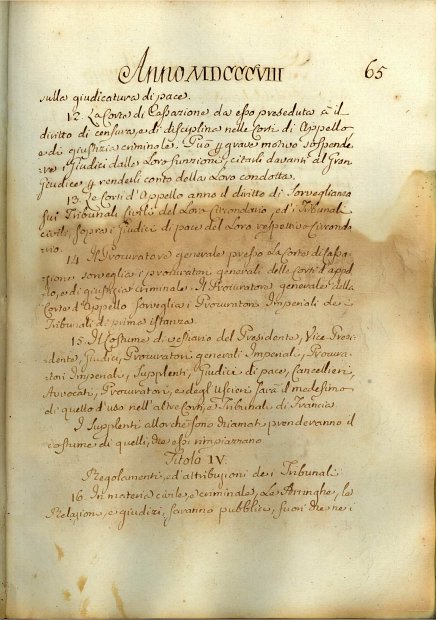 ANNO MDCCCVIII 65
sulla giudicatura di pace.
12. La Corte di Cassazione da essa preseduta à il
diritto di censura, e di disciplina nelle Corti di Appello
e di giustizia criminale. Può p grave motivo sospende-
re i Giudici dalle Loro funzioni, citarli davanti al Gran
Giudice p renderli conto della Loro condotta.
13. Le Corti d'Appello anno il diritto di Sorveglianza
sui Tribunali Civili del Loro Circondario, ed i Tribunali
civili, sopra i Giudici di pace del Loro rispettivo Circonda-
rio.
14. Il Procuratore generale presso La Corte di Cassa-
zione sorveglia i procuratori generali delle Corti d'appel-
lo, e di giustizia criminale. Il Procuratore generale della
Corte d'Appello sorveglia i Procuratori Imperiali de
Tribunali di prima istanza.
15. Il Costume di vestiario del Presidente, Vice Presi-
dente, Giudici, Procuratori generali Imperiali, Procura-
tori Imperiali, Supplenti, Giudici di pace, Cancellieri,
Avocati, Procuratori, e degl'Uscieri sarà il medesimo
di quello d'uso nell'altre Corti, e Tribunali di Francia
I Supplenti allorche sono chiamati prenderanno il
costume di quelli, che essi rimpiazzano.
Titolo IV.
Regolamenti, ed attribuzioni dei Tribunali
16. In materia civile, e criminale, Le Arringhe, le
Relazioni, e giudizi, saranno pubblici, fuori che ne i